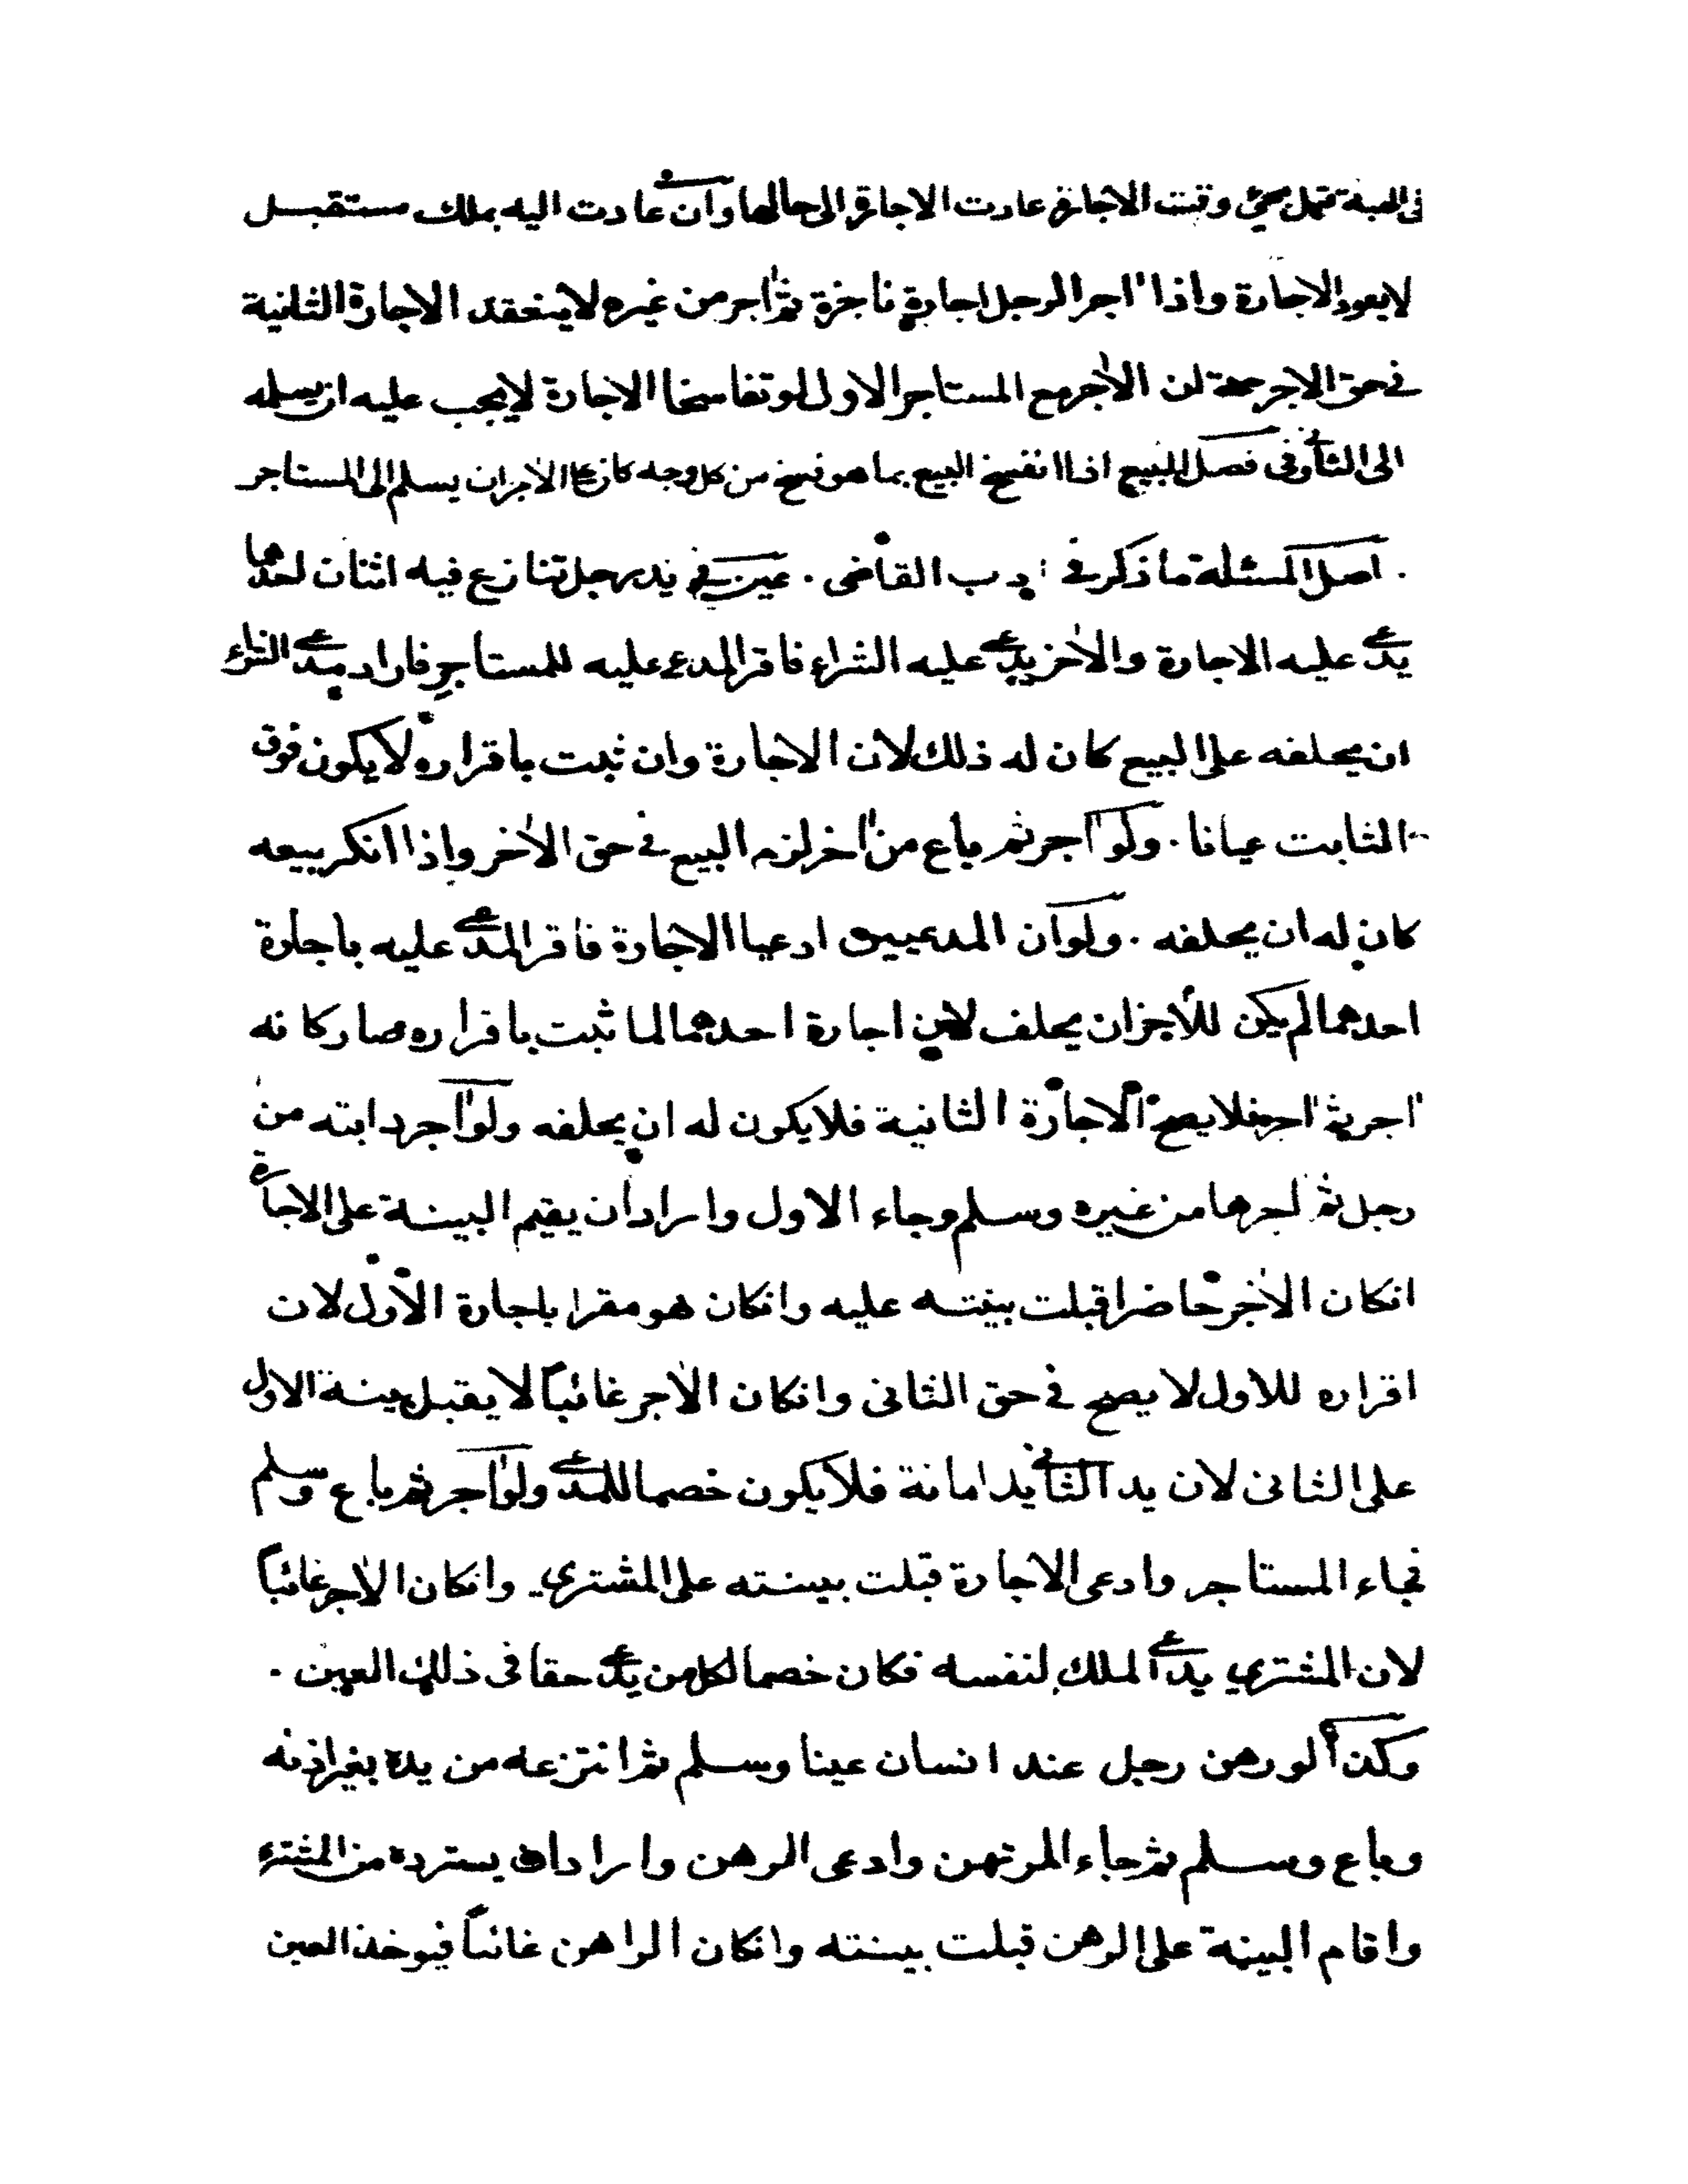 فى الهبة قبل مجئ وقت الاجارة عادت الاجارة الى حالها وان عادت اليه بملك مستقبل
لا يعود الاجارة واذا اجر الرجل اجارة ناجزة ثم اجر من غيره لا ينعقد الاجارة الثانية
فى حق الاجر حتى ان الاجر مع المستاجر الاول لو تفاسخا الاجارة لا يجب عليه ان يسلمه
الى الثانى وفى فصل البيع اذا انفسخ البيع بما هو فسخ من كل وجه كان على الاجر ان يسلم الى المستاجر
. اصل المسئلة ما ذكر فى ادب القاضى . عين فى يد رجل تنازع فيه اثنان احدهما
يدعى عليه الاجارة والاخر يدعى عليه الشراء فاقر المدعى عليه للمستاجر فاراد مدعى الشراء
ان يحلفه على البيع كان له ذلك لان الاجارة وان ثبت باقراره لا يكون فوق
الثابت عيانا . ولو اجر ثم باع من اخر لزمه البيع فى حق الاخر واذا انكر بيعه
كان له ان يحلفه . ولو ان المدعيين ادعيا الاجارة فاقر المدعى عليه باجارة
احدهما لم يكن للاخر ان يحلف لان اجارة احدهما لما ثبت باقراره صار كانه
اجر ثم اجر فلا يصح الاجارة الثانية فلا يكون له ان يحلفه ولو اجر دابته من
رجل ثم اجرها من غيره وسلم وجاء الاول واراد ان يقيم البينة على الاجارة
انكان الاجر حاضرا قبلت بينته عليه وانكان هو مقرا باجارة الاول لان
اقراره للاول لا يصح فى حق الثانى وانكان الاجر غائبا لا يقبل بينة الاول
على الثانى لان يد الثانى يد امانة فلا يكون خصما للمدعى ولو اجر ثم باع وسلم
فجاء المستاجر وادعى الاجارة قبلت بينته على المشتري وانكان الاجر غائبا
لان المشتري يدعى الملك لنفسه فكان خصما لكل من يدعى حقا فى ذلك العين .
وكذا لو رهن رجل عند انسان عينا وسلم ثم انتزعه من يده بغير اذنه
وباع وسلم ثم جاء المرتهن وادعى الرهن واراد ان يسترده من المشترى
واقام البينة على الرهن قبلت بينته وانكان الراهن غائبا فيوخذ العين